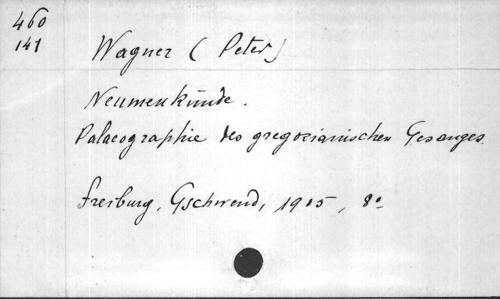 460
141
Wagner (Peter)
Neumenkunde.
Palaeographie des gregorianischen Gesanges.
Freiburg, Gschwend, 1905, 8°